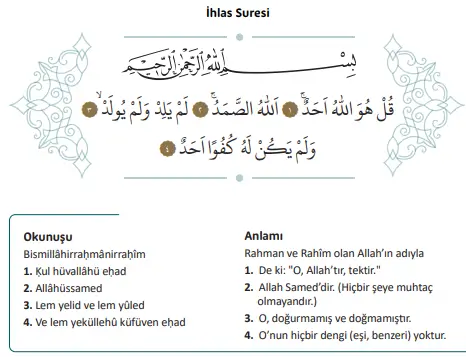 İhlas Suresi
بِسْمِ اللّٰهِ الرَّحْمٰنِ الرَّحٖيمِ
قُلْ هُوَ اللّٰهُ اَحَدٌۚ ﴿١﴾ اَللّٰهُ الصَّمَدُۚ ﴿٢﴾ لَمْ يَلِدْ وَلَمْ يُولَدْۙ ﴿٣﴾
وَلَمْ يَكُنْ لَهُ كُفُوًا اَحَدٌ ﴿٤﴾
Okunuşu
Bismillâhirraḥmânirraḥîm
1. Ḳul hüvallâhü eḥad
2. Allâhüssamed
3. Lem yelid ve lem yûled
4. Ve lem yeküllehû küfüven eḥad
Anlamı
Rahman ve Rahîm olan Allah’ın adıyla
1. De ki: "O, Allah’tır, tektir."
2. Allah Samed’dir. (Hiçbir şeye muhtaç
olmayandır.)
3. O, doğurmamış ve doğmamıştır.
4. O’nun hiçbir dengi (eşi, benzeri) yoktur.